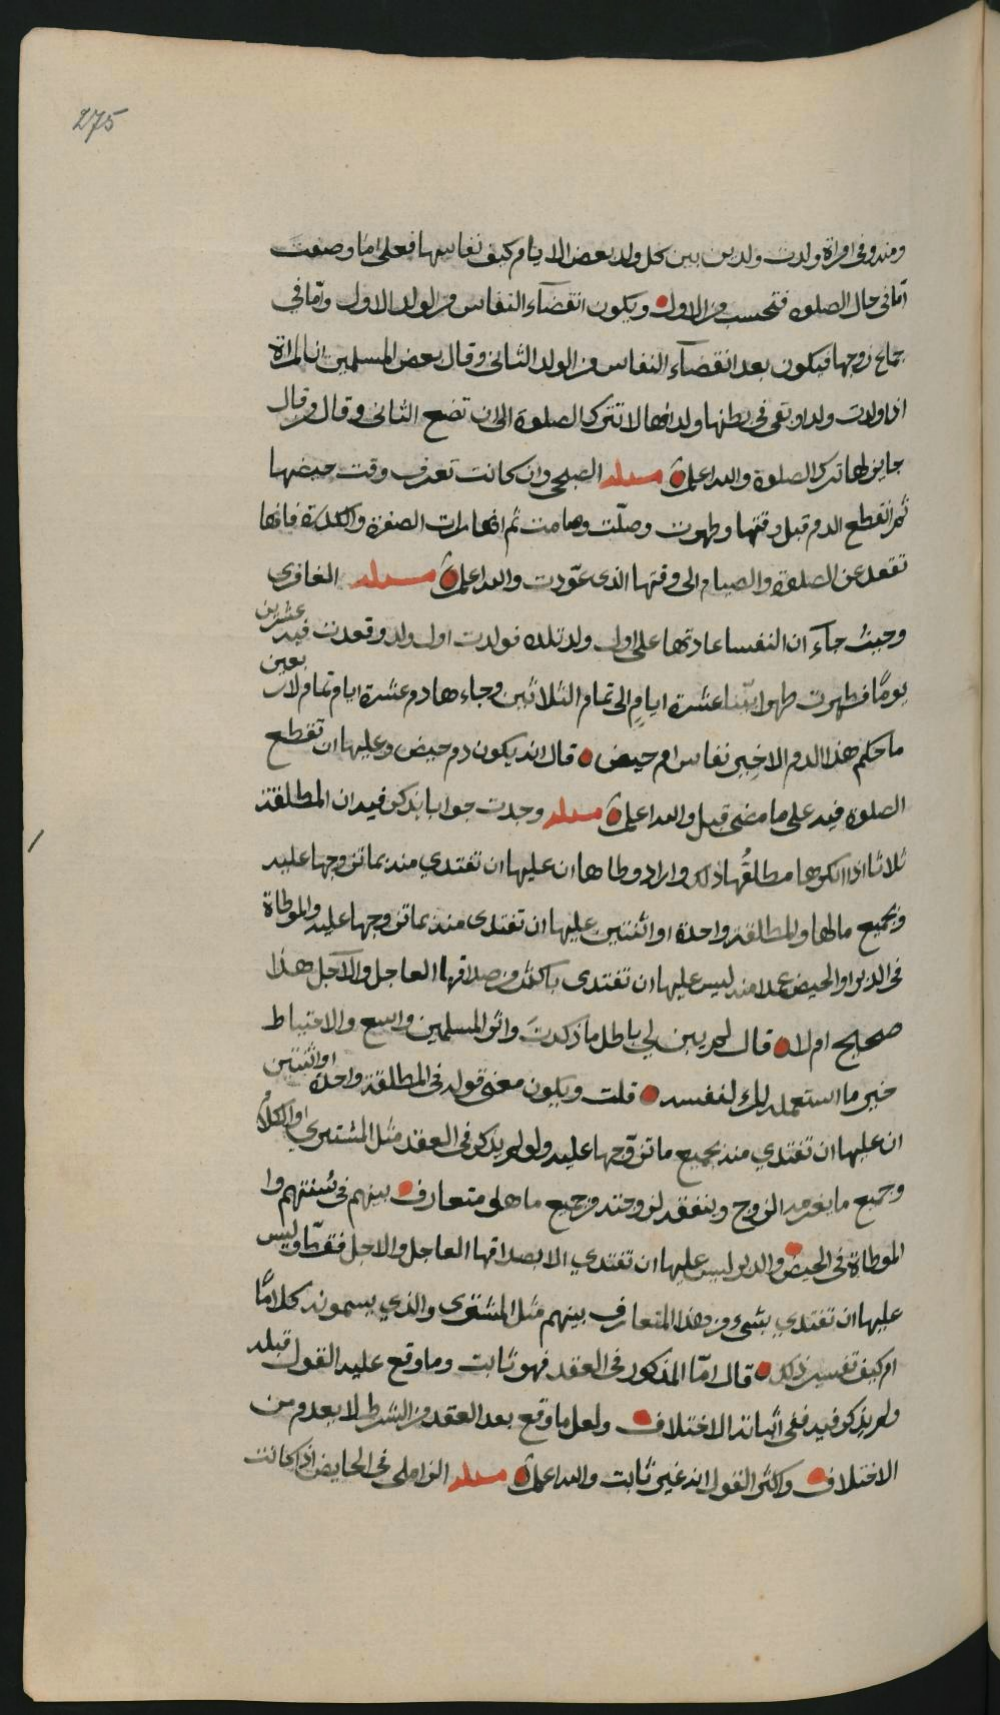 275
ومنه وفي امراة ولدت ولدين بين كل ولد بعض الايام كيف نفاسها فعلى ما وصفت
اما في حال الصلوة فتحسب من الاول ويكون انقضآء النفاس من الولد الاول وامّا في
جماع زوجها فيكون بعد انقضآء النفاس من الولد الثاني وقال بعض المسلمين ان المراة
اذا ولدت ولدا وبقى في بطنها ولد انها لا تترك الصلوة الى ان تضع الثاني وقال من قال
جايز لها ترك الصلوة والله اعلم مسئلة الصبحي وان كانت تعرف وقت حيضها
ثم انقطع الدم قبل وقتها وطهرت وصلّت وصامت ثم انها رات الصفرة والكدرة فانها
تقعد عن الصلوة والصيام الى وقتها الذي عوّدت والله اعلم مسئلة الغافري
وحيث جآء ان النفسا عادتها على اول ولد تلده فولدت اول ولد وقعدت فيه عشرين
يومًا فطهرت طهرا بيّنا عشرة ايام الى تمام الثلاثين وجاءها دم عشرة ايام تمام الاربعين
ما حكم هذا الدم الاخير نفاس ام حيض قال انه يكون دم حيض وعليها ان تقطع
الصلوة فيه على ما مضى قبل والله اعلم مسئلة وجدت جوابا يذكر فيه ان المطلقة
ثلاثا اذا انكرها مطلقُها ذلك واراد وطاها ان عليها ان تفتدي منه بما تزوجها عليه
وبجميع مالها والمطلقة واحدة او اثنتين عليها ان تفتدى منه بما تزوجها عليه والموطاة
في الدبر او الحيض عمدا منه ليس عليها ان تفتدى باكثر من صداقها العاجل والآجل هذا
صحيح ام لا قال لم يبين لي باطل ما ذكرتَ واثر المسلمين واسع والاحتياط
خير ما استعمله المرء لنفسه قلت ويكون معنى قوله في المطلقة واحدة او اثنتين
ان عليها ان تفتدي منه بجميع ما تزوّجها عليه ولو لم يذكر في العقد مثل المشترى او الكلأ
وجميع ما يغرمه الزوج وينفقه لزوجته وجميع ما هو متعارف بينهم في سُنتهم وا
الموطاة في الحيض والدبر ليس عليها ان تفتدي الا بصداقها العاجل والاجل فقط وليس
عليها ان تفتدي بشيء من هذا المتعارف بينهم مثل المشترى والذي يسمونه كلامًا
ام كيف تفسير ذلك قال امّا المذكور في العقد فهو ثابت وما وقع عليه القول قبله
ولم يذكر فيه ففى اثباته الاختلاف ولعل ما وقع بعد العقد من الشرط لا يعدم من
الاختلاف واكثر القول انه غير ثابت والله اعلم مسئلة الزاملي في الحايض اذا كانت